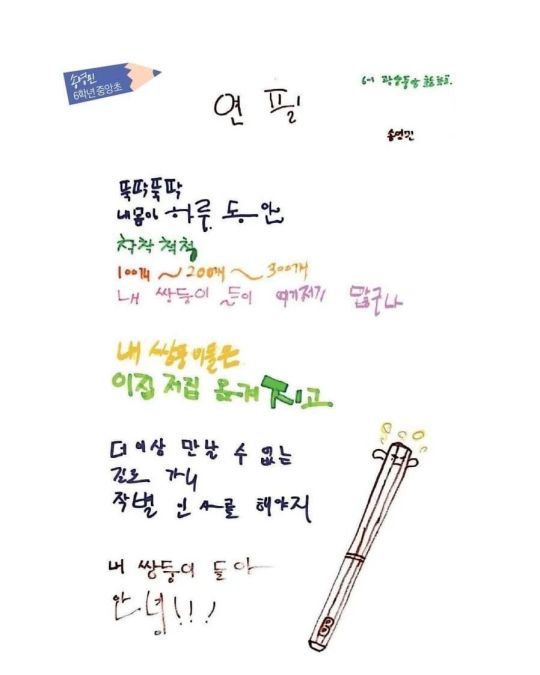 송영민
6학년 중앙초
6-1
연필
송영민
뚝딱뚝딱
내 몸이 하루 동안
착착 척척
100개 ~ 200개 ~ 300개
내 쌍둥이 들이 여기저기 많구나
내 쌍둥이들은
이집 저집 옮겨 지고
더 이상 만날 수 없는
길로 가니
작별 인사를 해야지
내 쌍둥이 들아
안녕!!!